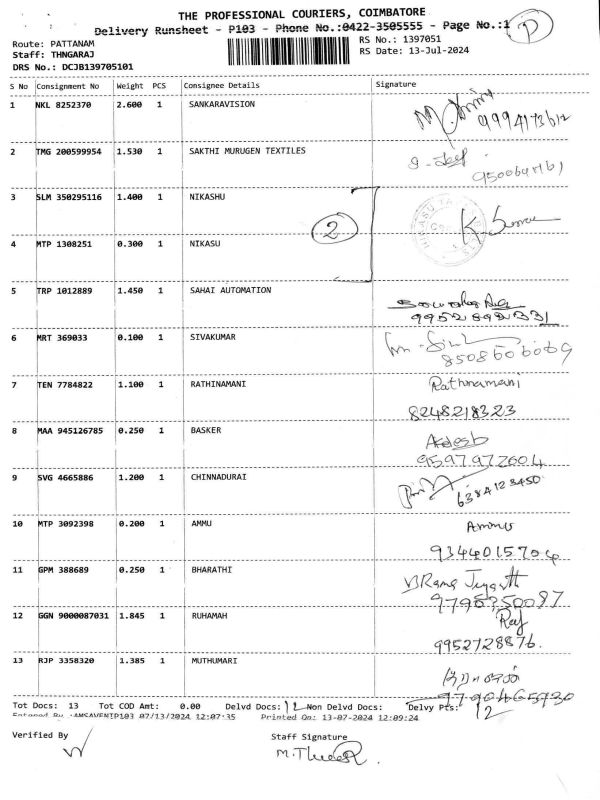 THE PROFESSIONAL COURIERS, COIMBATORE
Delivery Runsheet - P103 - Phone No.:0422-3505555 - Page No.:1 P
Route: PATTANAM RS No.: 1397051
Staff: THNGARAJ RS Date: 13-Jul-2024
DRS No.: DCJB139705101
S No Consignment No Weight PCS Consignee Details Signature
1 NKL 8252370 2.600 1 SANKARAVISION
9994173612
2 TMG 200599954 1.530 1 SAKTHI MURUGEN TEXTILES
3 SLM 350295116 1.400 1 NIKASHU
2
4 MTP 1308251 0.300 1 NIKASU
5 TRP 1012889 1.450 1 SAHAI AUTOMATION
9952892331
6 MRT 369033 0.100 1 SIVAKUMAR
8508606069
7 TEN 7784822 1.100 1 RATHINAMANI Rathnamani
8248218323
8 MAA 945126785 0.250 1 BASKER
9597972604
9 SVG 4665886 1.200 1 CHINNADURAI
6384123450
10 MTP 3092398 0.200 1 AMMU Ammu
9344015704
11 GPM 388689 0.250 1 BHARATHI
12 GGN 9000087031 1.845 1 RUHAMAH Raj
9952728876
13 RJP 3358320 1.385 1 MUTHUMARI
Tot Docs: 13 Tot COD Amt: 0.00 Delvd Docs: 12 Non Delvd Docs: Delvy Pts: 12
Entered By :AMSAVENIP103 07/13/2024 12:07:35 Printed On: 13-07-2024 12:09:24
Verified By Staff Signature